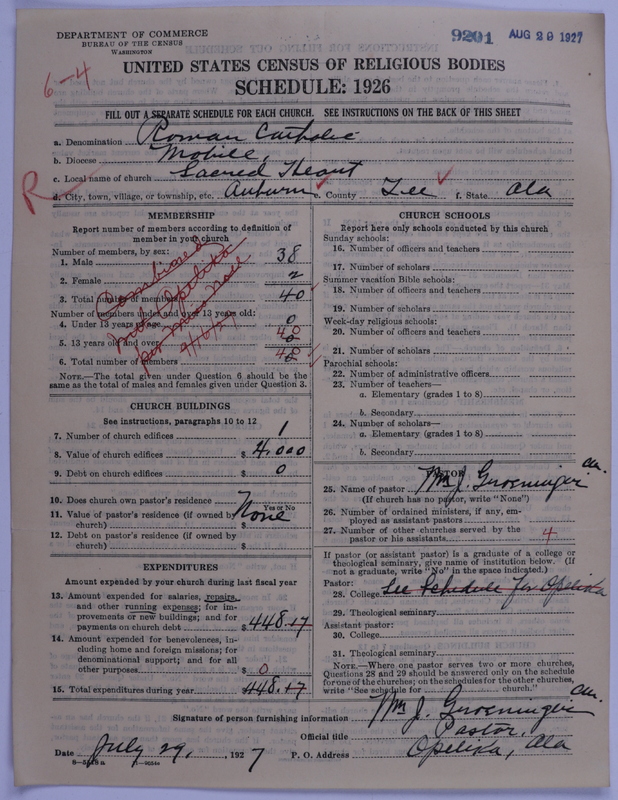 DEPARTMENT OF COMMERCE
BUREAU OF THE CENSUS
WASHINGTON
9201 AUG 29 1927
UNITED STATES CENSUS OF RELIGIOUS BODIES
SCHEDULE: 1926
6-4
FILL OUT A SEPARATE SCHEDULE FOR EACH CHURCH. SEE INSTRUCTIONS ON THE BACK OF THIS SHEET
a. Denomination Roman Catholic
b. Diocese Mobile,
c. Local name of church Sacred Heart
R
d. City, town, village, or township, etc. Auburn e. County Lee f. State Ala
MEMBERSHIP
Report number of members according to definition of member in your church
Number of members, by sex:
1. Male 38
2. Female 2
3. Total number of members 40
Number of members under and over 13 years old:
4. Under 13 years of age 0
5. 13 years old and over 40
6. Total number of members 40
Combined
with Opelika
NOTE.—The total given under Question 6 should be
same as the total of males and females given under Question 3.
CHURCH BUILDINGS
See instructions, paragraphs 10 to 12
7. Number of church edifices 1
8. Value of church edifices $ 4,000
9. Debt on church edifices $ 0
10. Does church own pastor's residence
Yes or No
11. Value of pastor's residence (if owned by
church) $ None
12. Debt on pastor's residence (if owned by
church) $
EXPENDITURES
Amount expended by your church during last fiscal year
13. Amount expended for salaries, repairs,
and other running expenses; for im-
provements or new buildings; and for
payments on church debt $ 448.17
14. Amount expended for benevolences, in-
cluding home and foreign missions; for
denominational support; and for all
other purposes $ 0
15. Total expenditures during year 448.17
CHURCH SCHOOLS
Report here only schools conducted by this church
Sunday schools:
16. Number of officers and teachers
17. Number of scholars
Summer vacation Bible schools:
18. Number of officers and teachers
19. Number of scholars
Week-day religious schools:
20. Number of officers and teachers
21. Number of scholars
Parochial schools:
22. Number of administrative officers
23. Number of teachers—
a. Elementary (grades 1 to 8)
b. Secondary
24. Number of scholars—
a. Elementary (grades 1 to 8)
b. Secondary
PASTOR
25. Name of pastor Wm J. Groeninger cm.
(If church has no pastor, write "None")
26. Number of ordained ministers, if any, em-
ployed as assistant pastors
27. Number of other churches served by the
pastor or his assistants 4
If pastor (or assistant pastor) is a graduate of a college or
theological seminary, give name of institution below. (If
not a graduate, write "No" in the space indicated.)
Pastor:
28. College See Schedule for Opelika
29. Theological seminary
Assistant pastor:
30. College
31. Theological seminary
NOTE.—Where one pastor serves two or more churches,
Questions 28 and 29 should be answered only on the schedule
for one of the churches; on the schedules for the other churches,
write "See schedule for church."
Signature of person furnishing information Wm J. Groeninger cm.
Official title Pastor,
Date July 29, 1927 P. O. Address Opelika, Ala